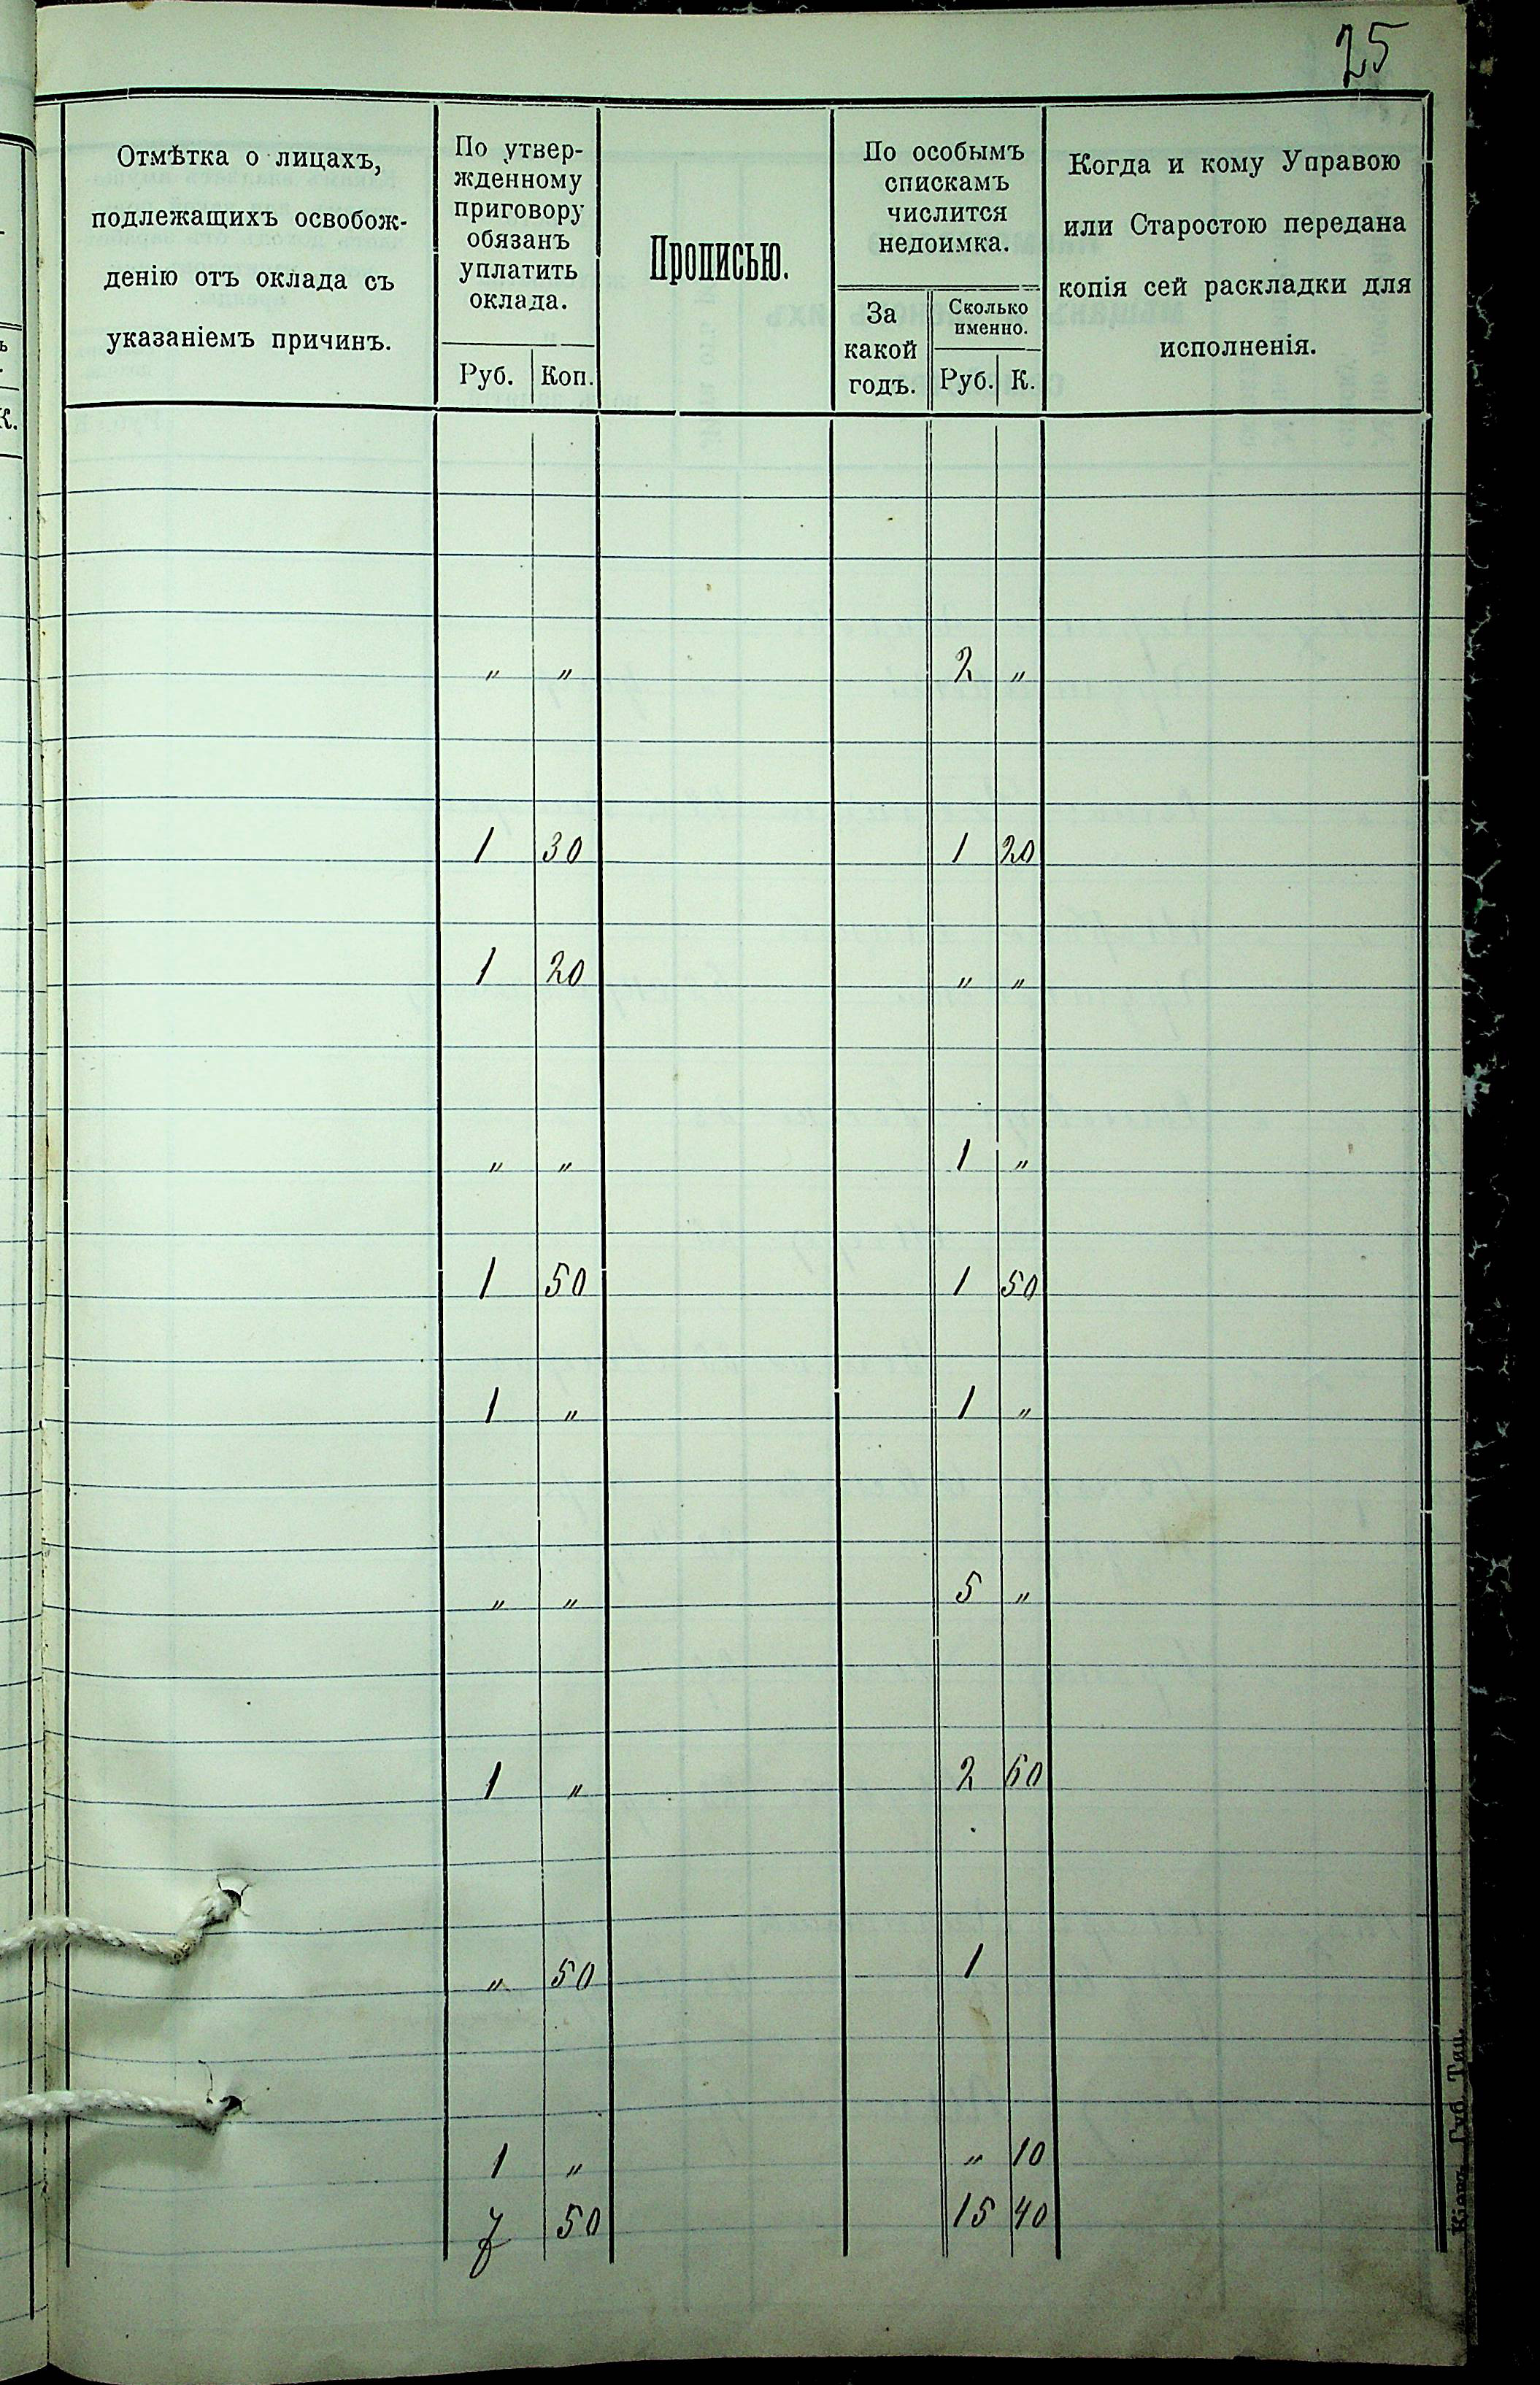 25
Отмѣтка о лицахъ,
подлежащихъ освобож-
денію отъ оклада съ
указаніемъ причинъ.
По утвер-
жденному
приговору
обязанъ
уплатить
оклада.
Руб. Коп.
Прописью.
По особымъ
спискамъ
числится
недоимка.
За
какой
годъ.
Сколько
именно.
Руб. К.
Когда и кому Управою
или Старостою передана
копія сей раскладки для
исполненія.
К.
„ „ 2 „
1 30 1 20
1 20 „ „
„ „ 1 „
1 50 1 50
1 „ 1 „
„ „ 5 „
1 „ 2 60
„ 50 1
1 „ „ 10
7 50 15 40
Кіевъ. Губ. Тип.